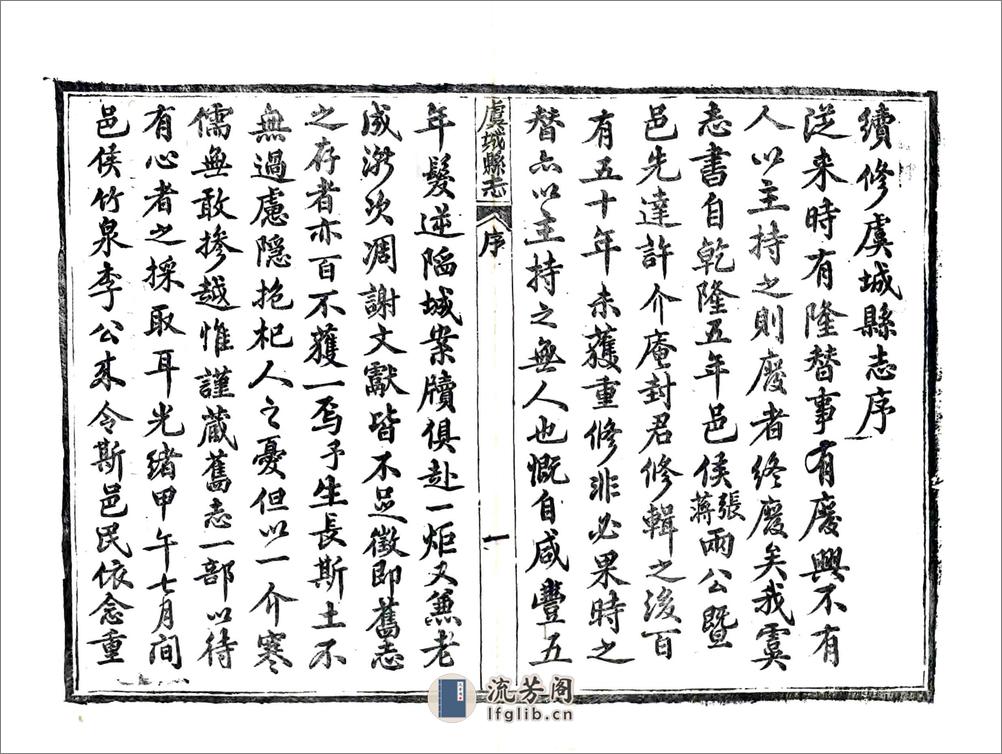 續修虞城縣志序
從來時有隆替事有廢興不有
人以主持之則廢者終廢矣我虞
志書自乾隆五年邑侯張蔣兩公暨
邑先達許介庵封君修輯之後百
有五十年未獲重修非必果時之
替亦以主持之無人也慨自咸豐五
虞城縣志
序
一
年髮逆陷城案牘俱赴一炬又兼老
成漸次凋謝文獻皆不足徵即舊志
之存者亦百不獲一焉予生長斯土不
無過慮隱抱杞人之憂但以一介寒
儒無敢摻越惟謹藏舊志一部以待
有心者之採取耳光緒甲午七月間
邑侯竹泉李公來令斯邑民依念重
流芳阁
lfglib.cn